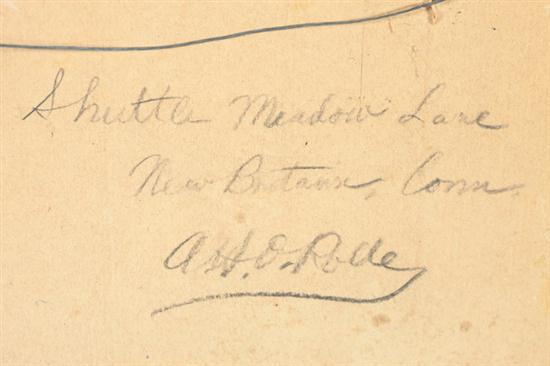 Shuttle Meadow Lane
New Britain, Conn.
A.H.O. Rolle